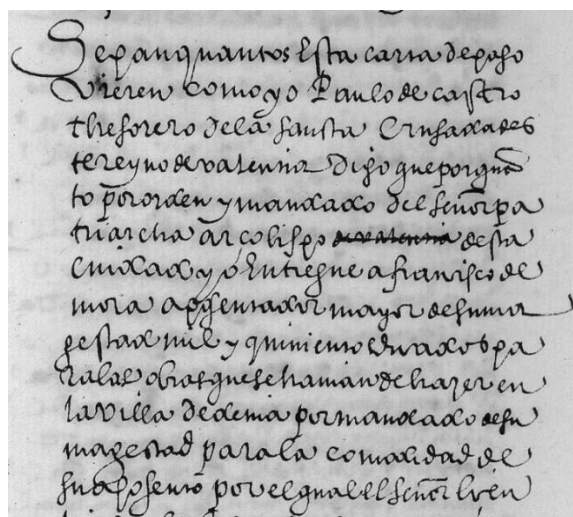 Sepan quantos Esta carta de poso
Vieren como yo Paulo de castro
thesorero de la santa Crusada des
te reyno de valencia digo que por quã
to por orden y mandado del señor pa
triarcha arcobispo de valencia desta
ciudad yo Entregue a francisco de
mora aposentador mayor de su ma
gestad mil y quiniento ducados pa
ra las obras que se hauian de hazer en
la villa de denia por mandado de su
magestad para la comodidad de
su aposento por el qual El señor